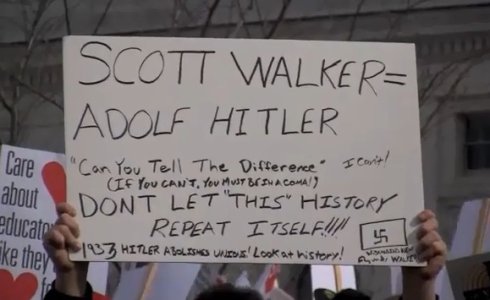 SCOTT WALKER =
ADOLF HITLER
"Can You Tell The Difference" I Can't!
(IF YOU CAN'T, YOU MUST BE IN A COMA!)
DONT LET "THIS" HISTORY
REPEAT ITSELF!!!!
1933 HITLER ABOLISHES UNIONS! Look at History!
Care
about
educato
like they